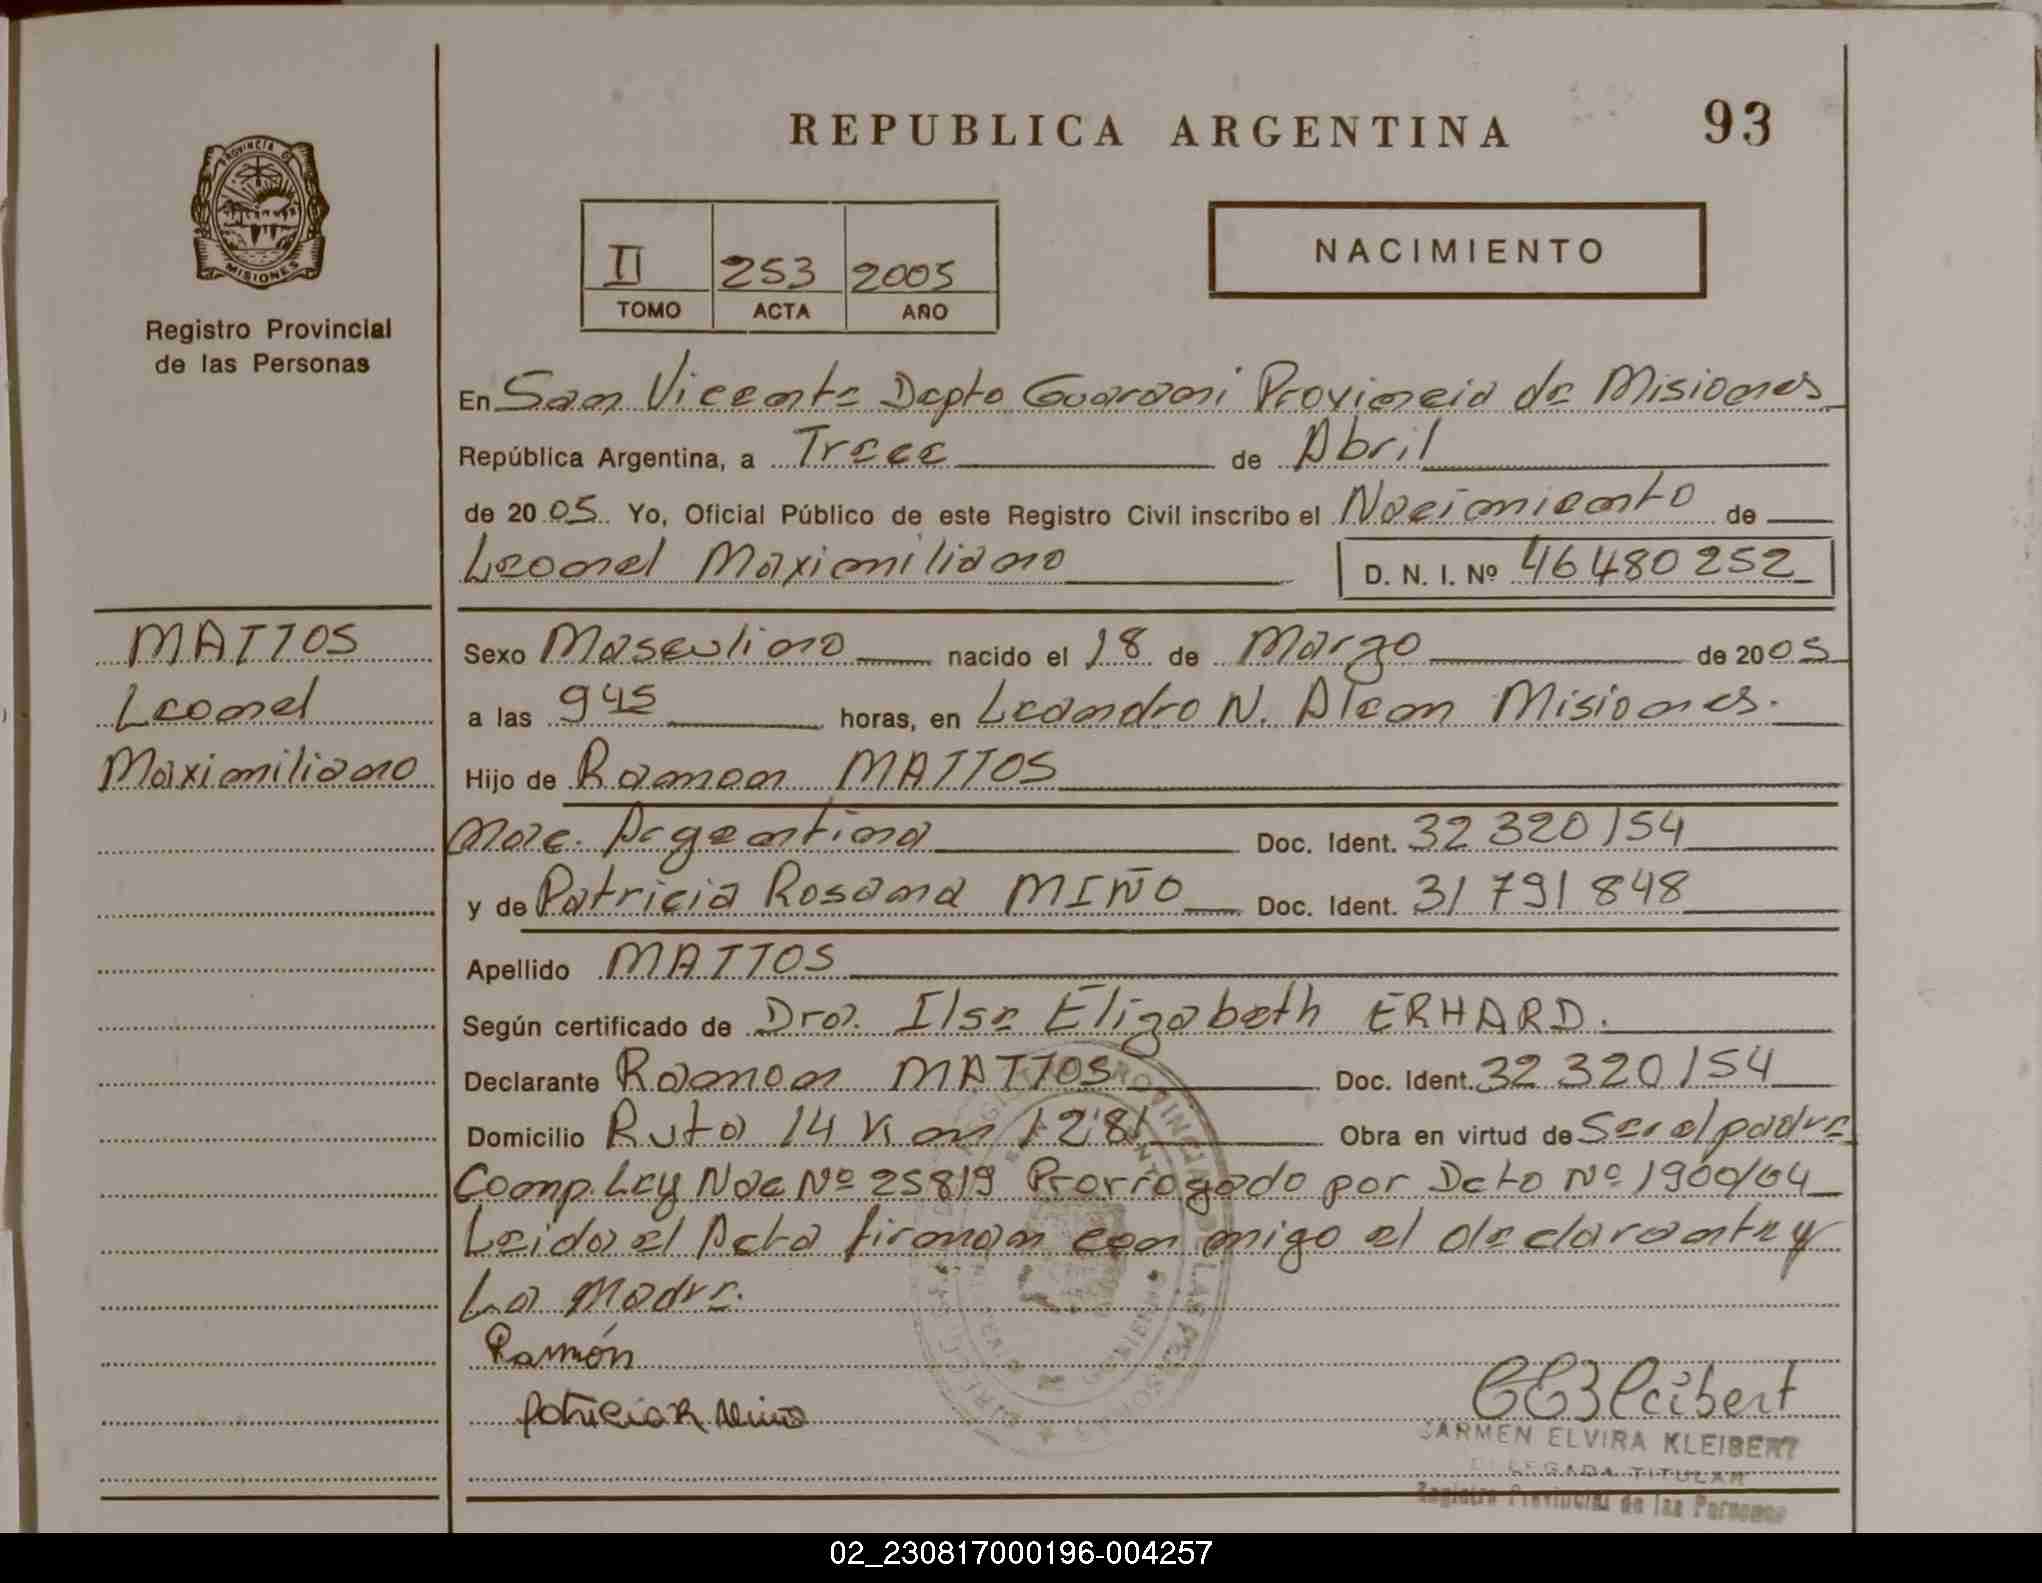 REPUBLICA ARGENTINA
93
PROVINCIA DE
MISIONES
Registro Provincial
de las Personas
II 253 2005
TOMO ACTA AÑO
NACIMIENTO
En San Vicente Dapto Guarani Provincia de Misiones
República Argentina, a Trece de Abril
de 2005 Yo, Oficial Público de este Registro Civil inscribo el Nacimiento de
Leonel Maximiliano D. N. I. Nº 46480252
MATTOS
Leonel
Maximiliano
Sexo Masculino nacido el 18 de Marzo de 2005
a las 945 horas, en Leandro N. Alem Misiones.
Hijo de Ramon MATTOS
Nac. Argentina Doc. Ident. 32 320 154
y de Patricia Rosana MIÑO Doc. Ident. 31 791 848
Apellido MATTOS
Según certificado de Dra. Ilse Elizabeth ERHARD.
Declarante Ramon MATTOS Doc. Ident. 32 320 154
Domicilio Ruta 14 Km 1281 Obra en virtud de Ser el padre
Comp. Ley Nac Nº 25819 Prorrogado por Dcto Nº 1900/04
Leida el Acta firman con migo el declarante y
La Madre.
Ramón
Patricia R Miño
CEKleibert
CARMEN ELVIRA KLEIBERT
DELEGADA TITULAR
Registro Provincial de las Personas
02_230817000196-004257